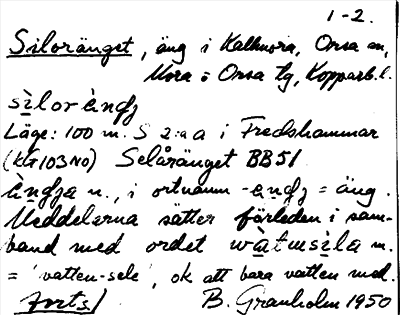 1-2.
Siloränget, äng i Kallmora, Orsa sn,
Mora o Orsa tg, Kopparb.l.
sìlorèngj
Läge: 100 m. S 2:a a i Fredshammar
(kt 103 NO) Selåränget BB 51
èngja n., i ortnamn -engj = äng.
Meddelarna sätter förleden i sam-
band med ordet wàtusìla n.
= 'vatten-sele', ok att bara vatten med.
Forts/ B. Granholm 1950